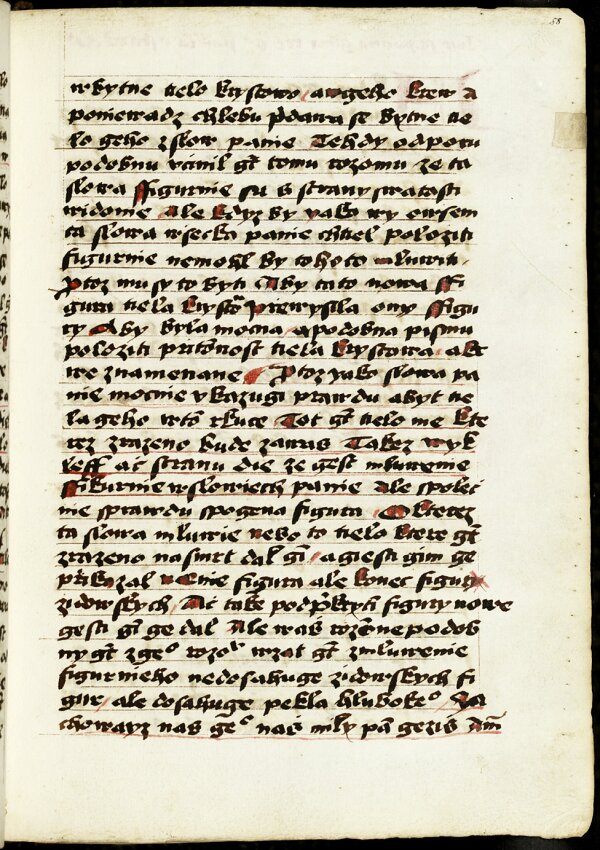 58
w bytne tielo krystowo a wgeho krew A
poniewadz chlebu pdawa se bytne tie
lo geho z slow panie Tehdy odporu
podobnu vcinil gt tomu rozomu ze ta
slowa ffigurnie su s strany swatosti
widomie Ale kdyz by yako wy owsem
ta slowa wsecka panie chtiel poloziti
figurnie nemohl by tohoto mluwiti
Protoz musy to byti Aby tato nowa ffi
gura tiela krysto przewysila ony ffigu
ry A by byla mocna a podobna pismu
poloziti pritonost tiela krystowa akt
we znamenane Protoz yako slowa pa
nie mocnie vkazugi prawdu abyt tie
la geho wto rkuce Tot gt tielo me kte
rez zrazeno bude za was Takez wyk
leff ac stranu die ze gest mluwenie
ffikurnie w slowiech panie Ale spolec
nie s prawdu spogena figura O kterez
ta slowa mluwie nebo to tielo ktere gt
zrazeno na smrt dal gi a giesti gim ge
prikazal Nenie figura ale konec figur
zidowskych Ac take pod pkryti figury nowe
gesti gi ge dal Ale was rozome podob
ny gt zge rozo wzat gt z mluwenie
figurnieho nedosahuge zidowskych fi
gur ale dosahuge pekla hluboke Za
chowayz nas ge nas mily pa gezis Am